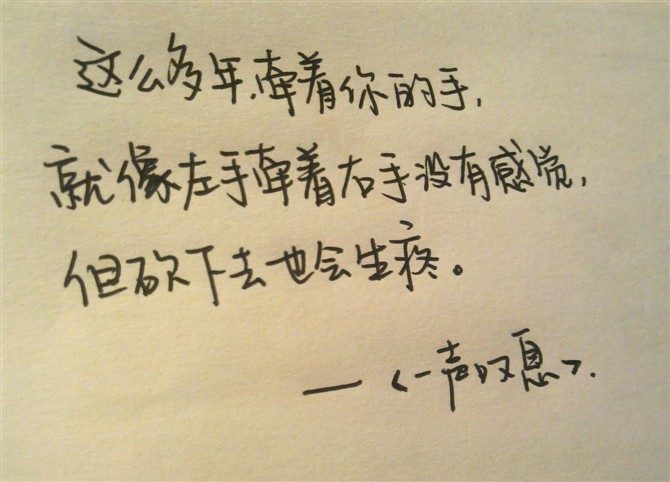 这么多年,牵着你的手,
就像左手牵着右手没有感觉,
但砍下去也会生疼。
—<一声叹息>.